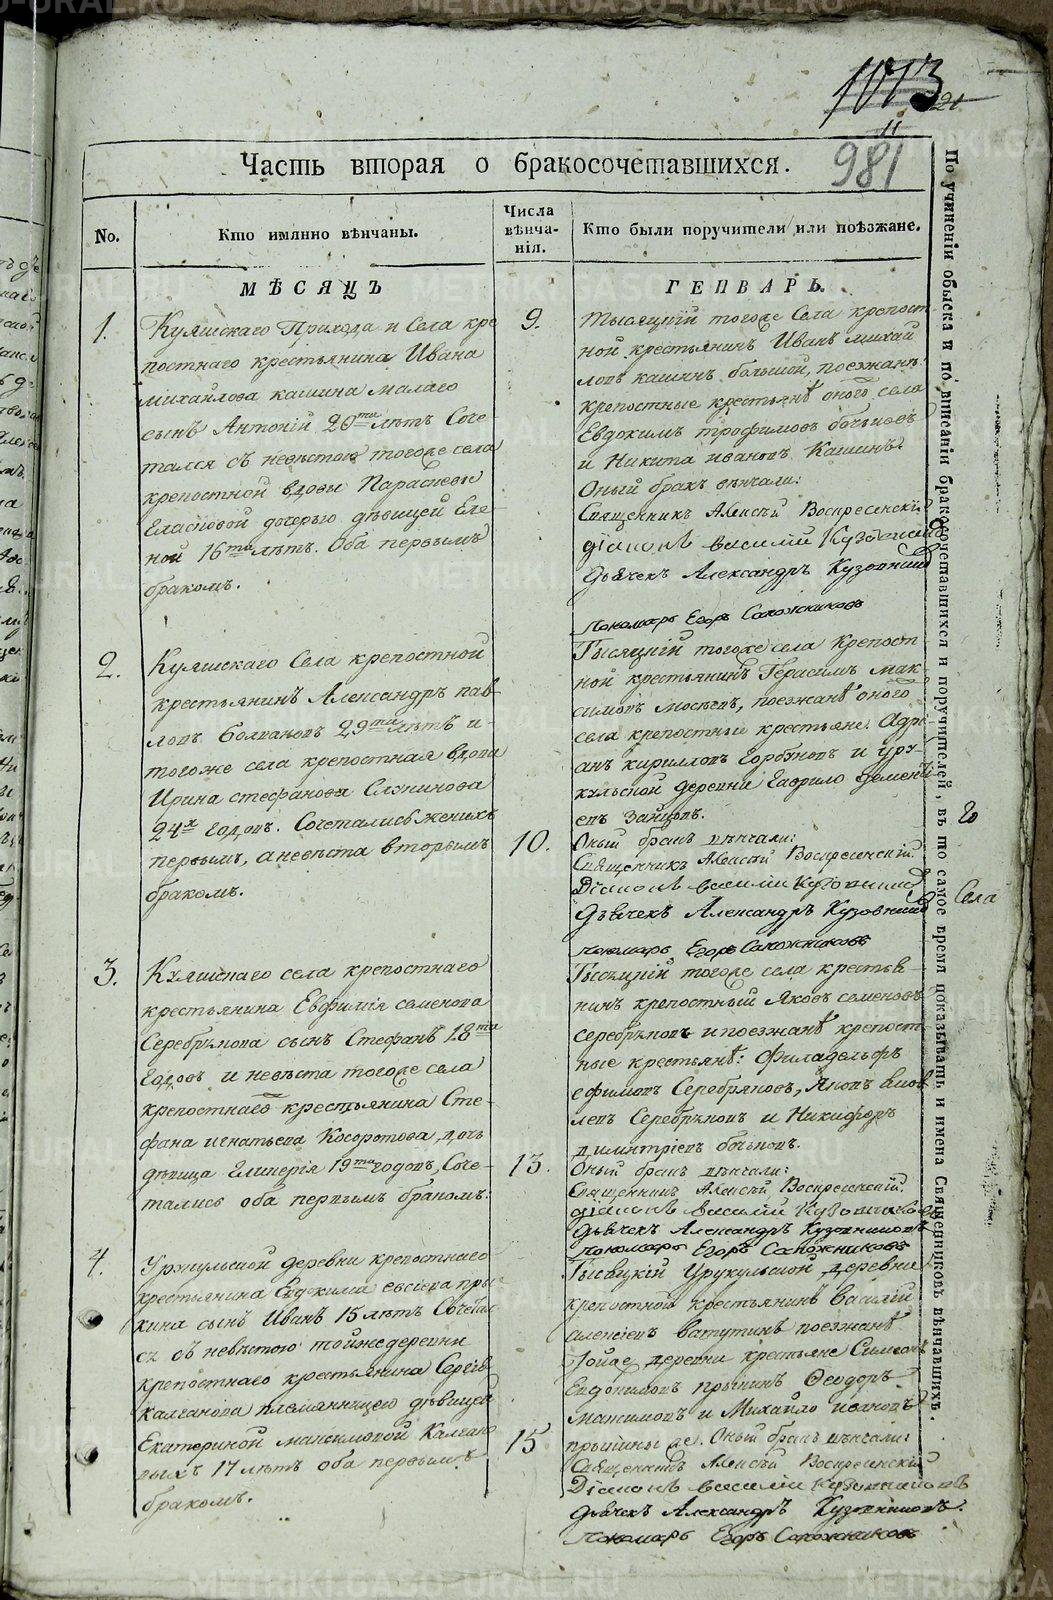 1013
21
981
Часть вторая о бракосочетавшихся.
No.
Кто имянно вѣнчаны.
Числа
вѣнча-
нія.
Кто были поручители или поѣзжане.
МѢСЯЦЪ
ГЕНВАРЬ.
1.
Куяшскаго Прихода и Села кре
постнаго крестьянина Ивана
михайлова кашина малаго
сынъ Антоній 20ти лѣтъ Соче
тался съ невѣстою тогоже села
крепостной вдовы Парасковьи
дочерью дѣвицей Еле-
ной 16ти лѣтъ. Оба первымъ
бракомъ.
9.
Тысяцкій тогоже Села крепост
ной крестьянинъ Иванъ михай
ловъ кашинъ большой, поезжанѣ
крепостные крестьянѣ оного села
Евдокимъ трофимовъ
и Никита ивановъ Кашинъ.
Оный бракъ вѣнчали:
Священникъ Алексѣй Воскресенскій
діаконъ василій
Дьячекъ Александръ
Пономарь Егоръ Сапожниковъ
2.
Куяшскаго Села крепостной
крестьянинъ Александръ пав-
ловъ 29ти лѣтъ и
тогоже села крепостная вдова
Ирина стефанова
24х годовъ. Сочетались женихъ
первымъ, а невѣста вторымъ
бракомъ.
10.
Тысяцкій тогоже села крепост
ной крестьянинъ Герасимъ мак
симовъ поезжанѣ оного
села крепостные крестьяне: Адрі
анъ кирилловъ Горбуновъ и уру
кульской деревни Гаврило семень
евъ Зайцовъ.
Оный бракъ вѣнчали:
Священникъ Алексѣй Воскресенскій.
Діаконъ василій
Дьячекъ Александръ
пономарь Егоръ Сапожниковъ
3.
Куяшскаго села крепостнаго
крестьянина Евфимія семенова
Серебрякова сынъ Стефанъ 18ти
Годовъ и невѣста тогоже села
крепостнаго крестьянина Сте-
фана игнатьева Косоротова дочь
дѣвица Гликерія 19ти годовъ, Соче-
тались оба первымъ бракомъ.
13.
Тысяцкій тогоже села крестья
нинъ крепостный Яковъ семеновъ
серебряковъ и поезжанѣ крепост
ные крестьянѣ: Филадельфъ
ефимовъ Серебряковъ,
Серебряковъ и Никифоръ
димитріевъ
Оный бракъ вѣнчали:
Священникъ Алексѣй Воскресенскій.
діаконъ василій
дьячекъ Александръ
Пономарь Егоръ Сапожниковъ
4.
Урукульской деревни крепостнаго
крестьянина Евдокима
сынъ Иванъ 15 лѣтъ Сочетал
ся съ невѣстою тойже деревни
крепостнаго крестьянина Сергія
Калганова племянницею дѣвицей
Екатериной максимовой Калгано
выхъ 17 лѣтъ оба первымъ
бракомъ.
15
Тысяцкій Урукульской деревни
крепостной крестьянинъ василій
алексіевъ ватутинъ поезжанѣ
тойже деревни крестьяне Симеонъ
Евдокимовъ Феодоръ
максимовъ и Михайло ивановъ
Оный бракъ вѣнчали:
Священникъ Алексѣй Воскресенскій
Діаконъ василій
дьячекъ Александръ
Пономарь Егоръ Сапожниковъ
По учиненіи обыска и по вписаніи бракосочетавшихся и поручителей, въ то самое время показывать и имена Священниковъ вѣнчавшихъ.
Го
Села
METRIKI.GASO-URAL.RU